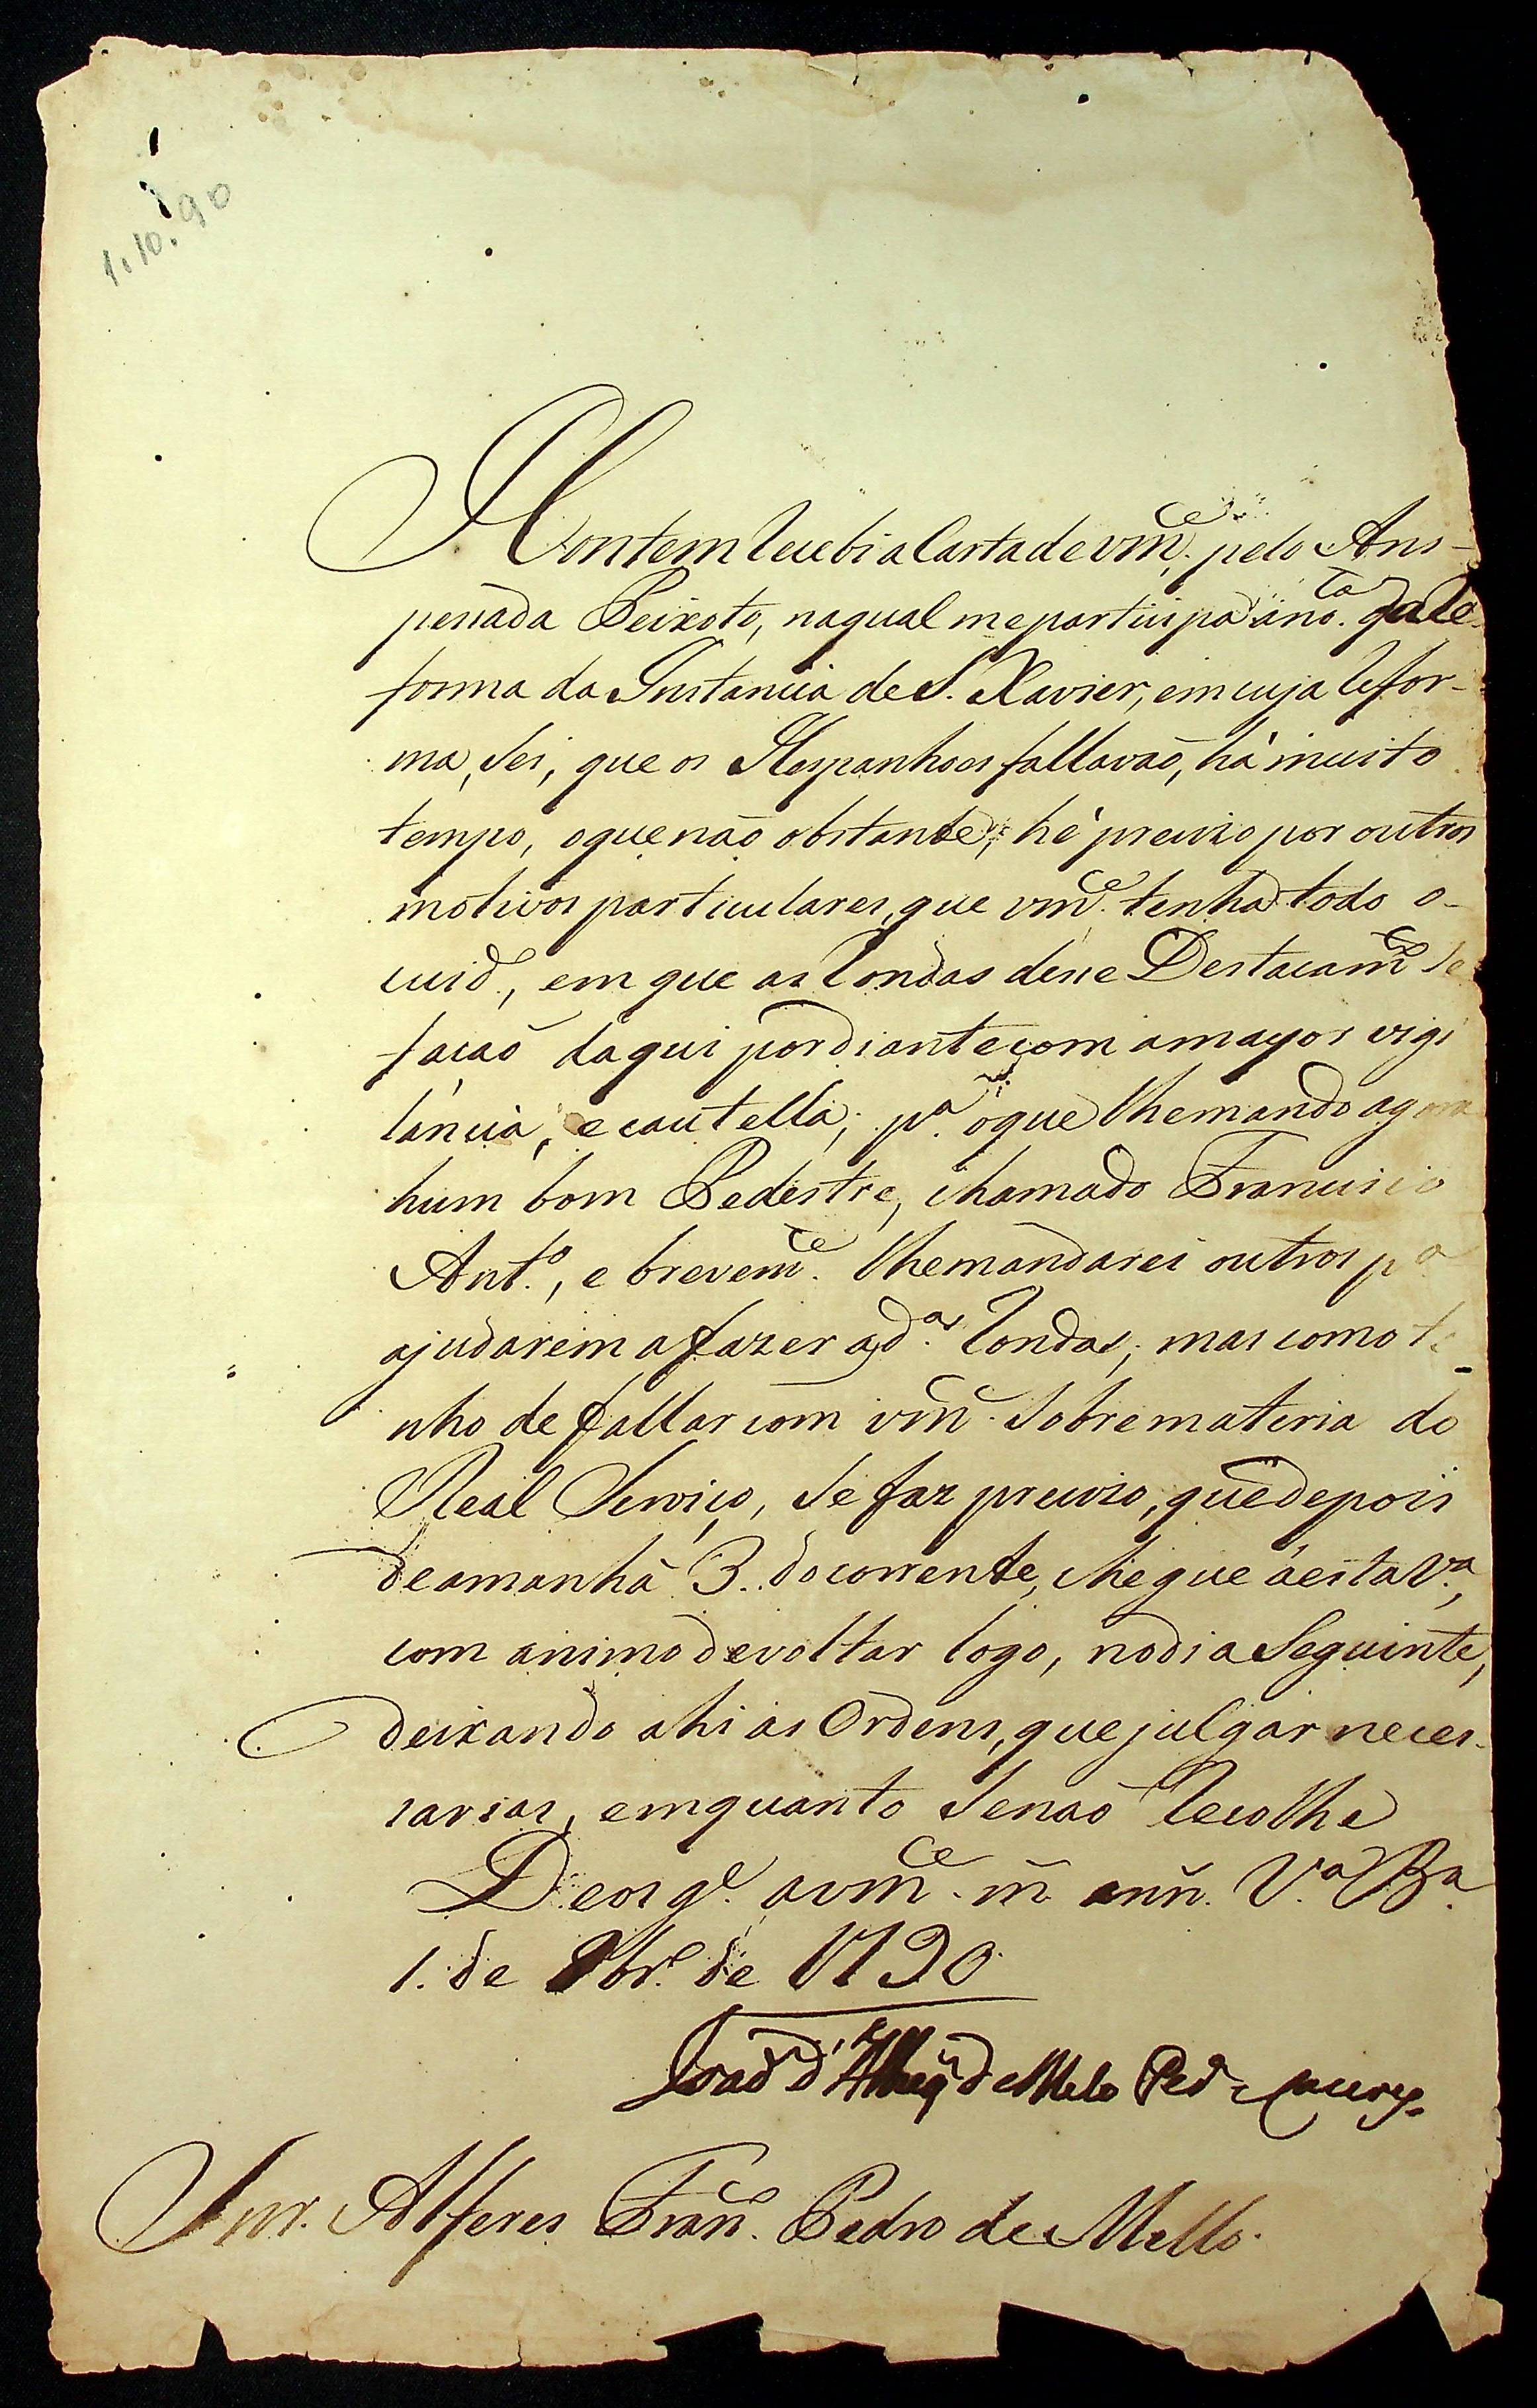 1.10.90
Hontem recebi a Carta de vm.ce pelo Ans-
pessada Peixoto, na qual me participa a no.ta da Re-
forma da Instancia de S. Xavier, em cuja refor-
ma, sei, que os Hespanhoes fallavaõ, há muito
tempo, o que naõ obstante, he precizo por outros
motivos particulares, que vm.ce tenha todo o
cuid.º, em que as rondas desse Destacam.to se
façaõ daqui por diante com a mayor vigi
lancia, e cautella; p.ª o que lhe mando agora
hum bom Pedestre, chamado Francisco
Ant.º, e brevem.te lhe mandarei outros p.ª
ajudarem a fazer as d.as rondas; mas como te
nho de fallar com vm.ce sobre materia do
Real Serviço, se faz precizo, que depois
de amanhã 3. do corrente, chegue á esta V.ª,
com animo de voltar logo, no dia seguinte,
deixando ahi as Ordens, que julgar neces-
sarias, emquanto se naõ recolhe
Deos g.e a vm.ce m. ann. V.ª B.ª
1. de 8br.º de 1790
Joaõ d'Albuq. de Mello Per.ª e Caceres.
Snr. Alferes Fran.co Pedro de Mello.